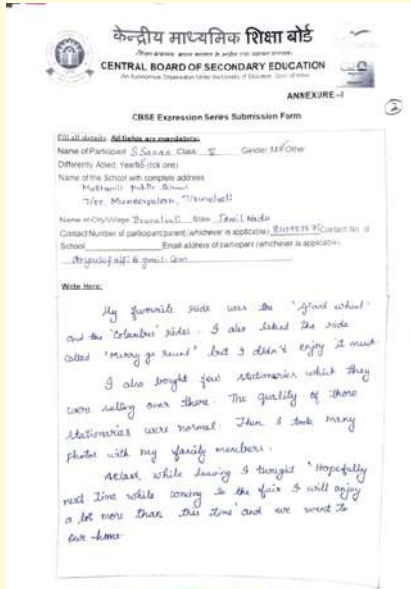 केन्द्रीय माध्यमिक शिक्षा बोर्ड
CENTRAL BOARD OF SECONDARY EDUCATION
ANNEXURE –I
2
CBSE Expression Series Submission Form
Fill all details. All fields are mandatory:
Name of Participant Class V Gender: M/F/Other
Differently Abled: Yes/No (tick one)
Name of the School with complete address
Public School
Name of City/Village State Tamil Nadu
Contact Number of participant/parent (whichever is applicable) Contact No. of
School Email address of participant (whichever is applicable)
Write Here:
My favourite ride was the "Giant wheel"
and the "Columbus" rides. I also liked the ride
called "Merry go round" but I didn't enjoy it much.
I also bought few stationaries which they
were selling over there. The quality of those
stationaries were normal. Then I took many
photos with my family members.
Atlast, while leaving I thought "Hopefully
next time while coming to the fair I will enjoy
a lot more than this time" and we went to
our home.